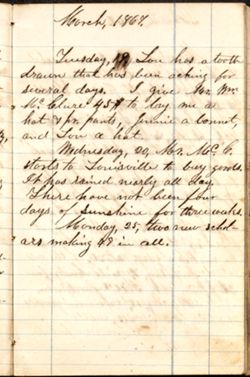 March, 1867.
Tuesday, 19, Lou has a tooth
drawn that has been aching for
several days. I give Mr. Wm.
McClure 45$ to buy me a
hat & pr. pants, Jennie a bonnet,
and Lou a hat.
Wednesday, 20, Mr. McC.
starts to Louisville to buy goods.
It has rained nearly all day.
There have not been four
days of sunshine for three weeks.
Monday, 25, two new schol-
ars making 48 in all.